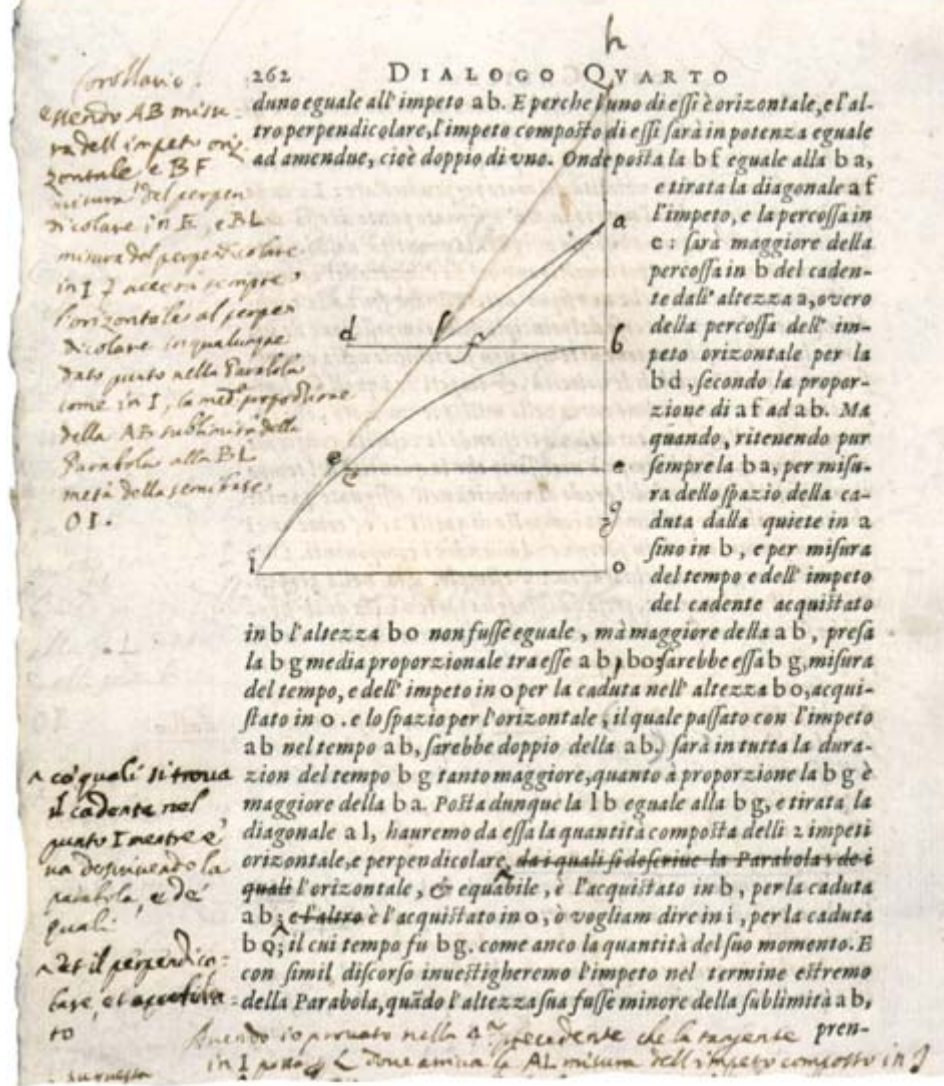 262 DIALOGO QVARTO
duno eguale all'impeto ab. E perche l'uno di essi è orizontale, e l'al-
tro perpendicolare, l'impeto composto di essi sarà in potenza eguale
ad amendue, cioè doppio di vno. Onde posta la bf eguale alla ba,
e tirata la diagonale af
l'impeto, e la percossa in
e: sarà maggiore della
percossa in b del caden-
te dall'altezza a, overo
della percossa dell'im-
peto orizontale per la
bd, secondo la propor-
zione di af ad ab. Ma
quando, ritenendo pur
sempre la ba, per misu-
ra dello spazio della ca-
duta dalla quiete in a
sino in b, e per misura
del tempo e dell'impeto
del cadente acquistato
in b l'altezza bo non fusse eguale, mà maggiore della ab, presa
la bg media proporzionale tra esse ab, bo sarebbe essa bg, misura
del tempo, e dell'impeto in o per la caduta nell'altezza bo, acqui-
stato in o. e lo spazio per l'orizontale, il quale passato con l'impeto
ab nel tempo ab, sarebbe doppio della ab, sarà in tutta la dura-
zion del tempo bg tanto maggiore, quanto à proporzione la bg è
maggiore della ba. Posta dunque la lb eguale alla bg, e tirata la
diagonale al, hauremo da essa la quantità composta delli 2 impeti
orizontale, e perpendicolare, da i quali si descriue la Parabola; de i
quali l'orizontale, & equabile, è l'acquistato in b, per la caduta
ab; e l'altro è l'acquistato in o, ò vogliam dire in i, per la caduta
bo; il cui tempo fu bg. come anco la quantità del suo momento. E
con simil discorso inuestigheremo l'impeto nel termine estremo
della Parabola, quādo l'altezza sua fusse minore della sublimità ab,
pren-
h
a
d
b
e
e
g
i
o
Corollario.
essendo AB misu-
ra dell'impeto ori
zontale e BF
misura del perpen
dicolare in E, e BL
misura del perpendicolare
in I sempre
l'orizontale al perpen
dicolare in qualunque
dato punto nella Parabola
come in I, la med. proporzione
della AB sublimità della
Parabola alla BL
metà della semibase
OI.
^ co' quali si troua
il cadente nel
punto I mentre e'
va descriuendo la
parabola, e de'
quali
^ et il perpendico-
lare,
to
Auendo io prouato nella 4.ª precedente che la tangente
in I L doue arriua la AL misura dell'impeto composto in I